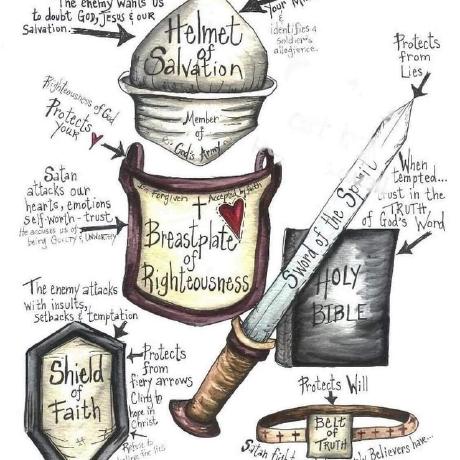 The enemy wants us
to doubt GOD, JESUS & our
Salvation.
your
&
identifies a
soldier's
allegience.
Helmet
of
Salvation
Member
of
God's Army
Protects
from
Lies
Righteousness of God
Protects
your
Satan
attacks our
hearts, emotions
self-worth - trust
He accuses us of
being GUILTY & UNWORTHY
I'm Forgiven
Accepted by faith
Breastplate
of
Righteousness
Sword of the Spirit
When
tempted...
trust in the
TRUTH
of God's Word
HOLY
BIBLE
The enemy attacks
with insults,
setbacks & temptation
Shield
of
Faith
Protects
from
fiery arrows
Cling to
hope in
Christ
Refuse to
the lies
Protects Will
Belt
of
TRUTH
Satan fight
Believers have...